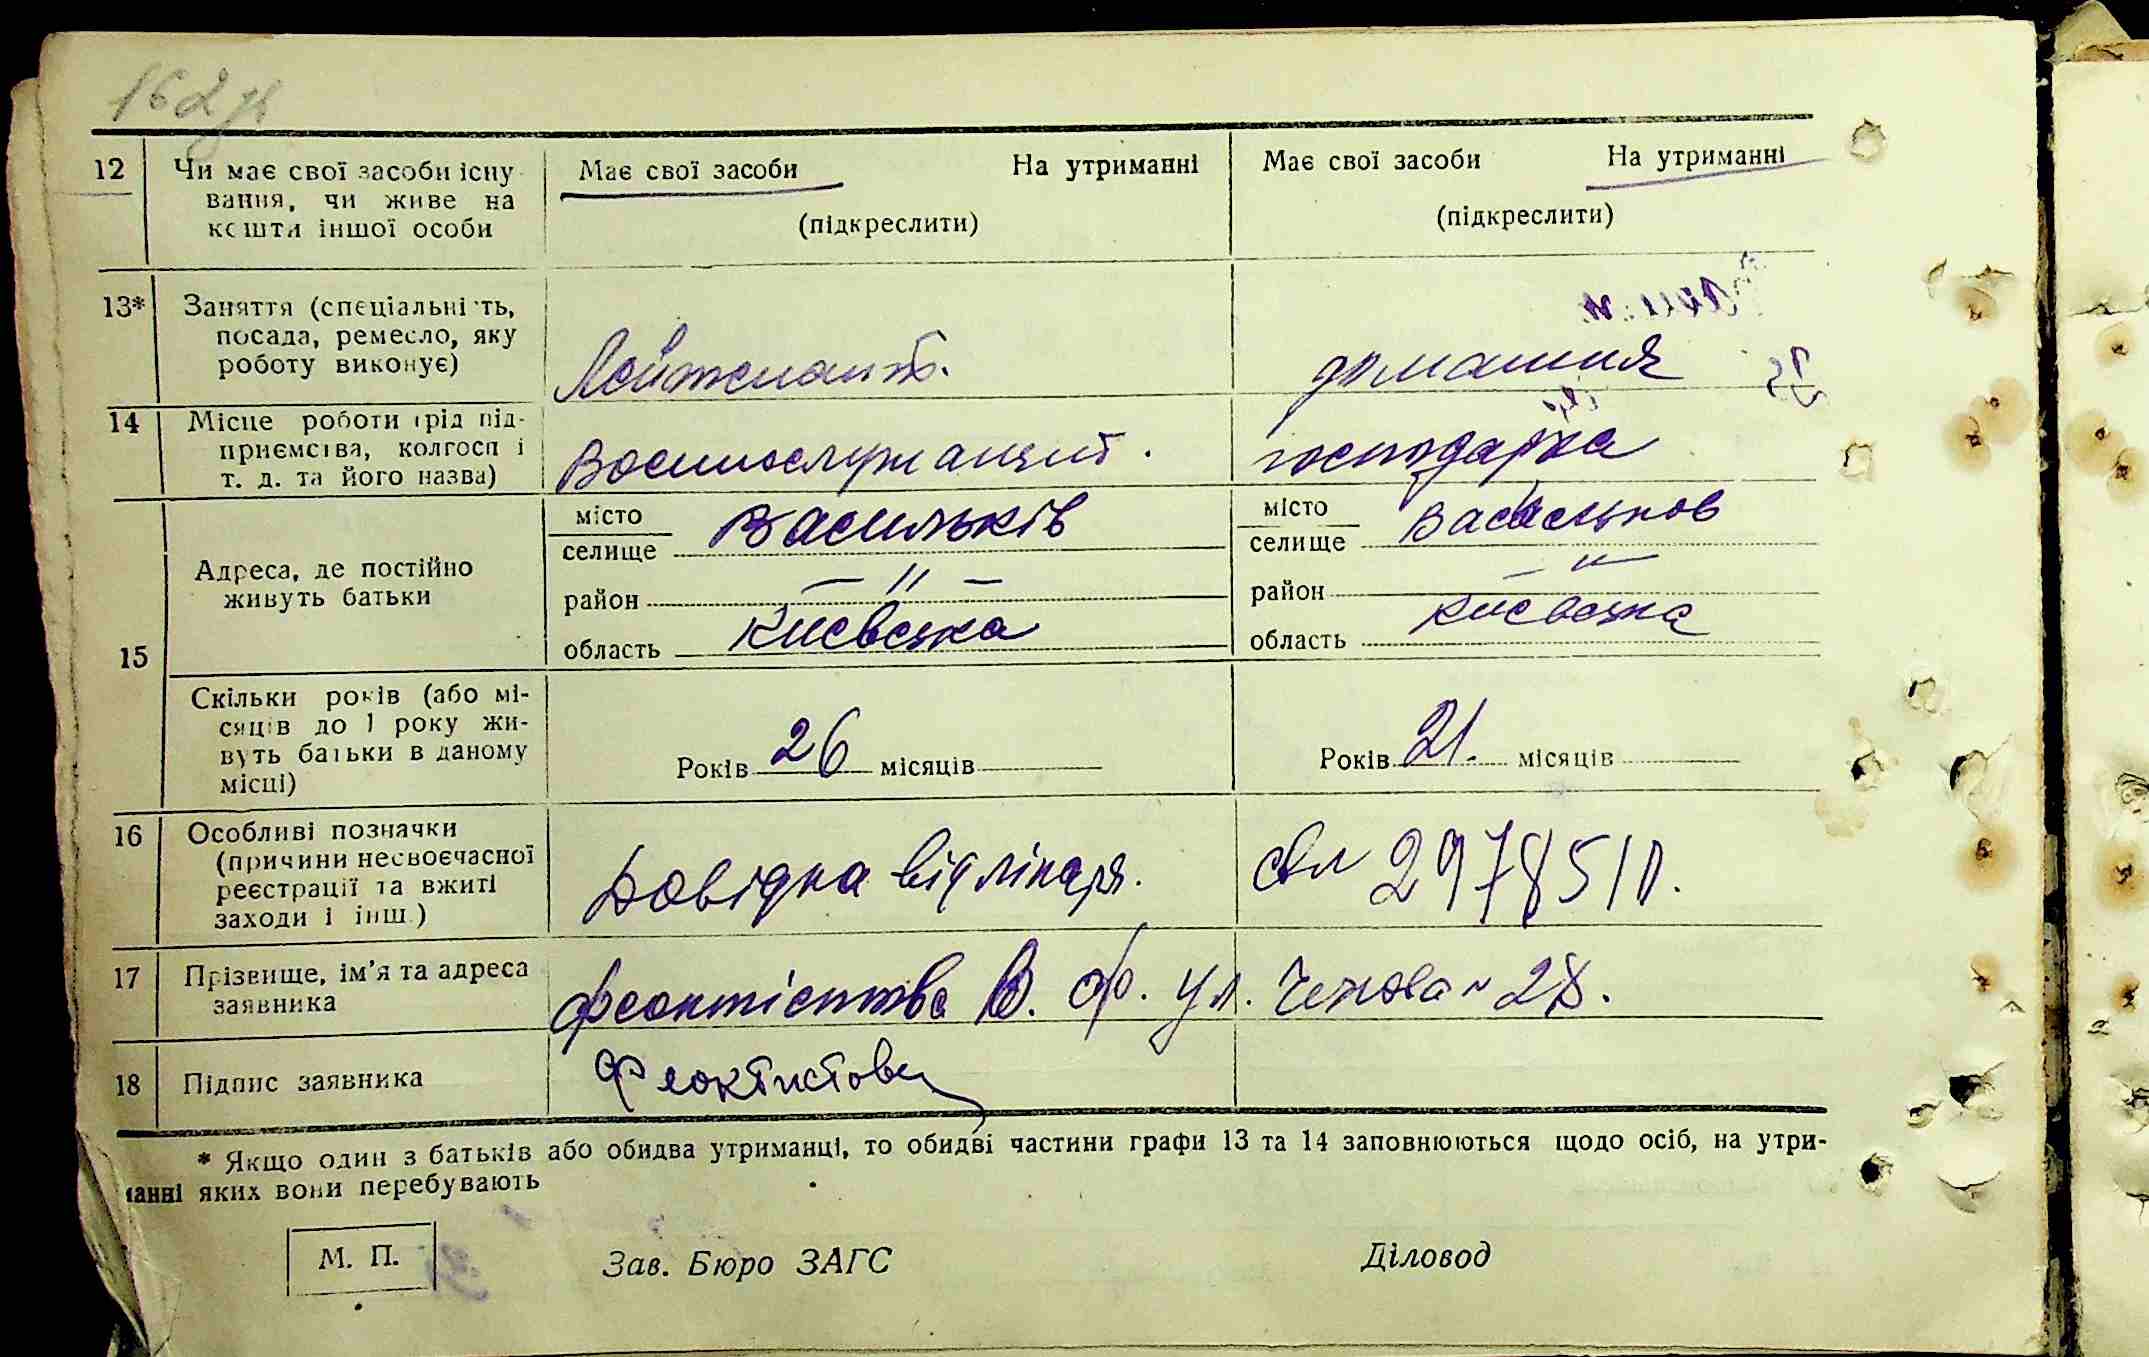 162
12 Чи має свої засоби існу- Має свої засоби На утриманні Має свої засоби На утриманні
вання, чи живе на
кошти іншої особи (підкреслити) (підкреслити)
13* Заняття (спеціальність,
посада, ремесло, яку
роботу виконує) Лейтенант. домашня
14 Місце роботи (рід під-
приємства, колгосп і
т. д. та його назва) Военнослужащий. господарка
місто Васильків місто Васильков
селище селище
Адреса, де постійно
живуть батьки район — " — район — " —
15 область Киевська область Киевська
Скільки років (або мі-
сяців до 1 року жи-
вуть батьки в даному
місці) Років 26 місяців Років 21. місяців
16 Особливі позначки
(причини несвоєчасної
реєстрації та вжиті
заходи і інш.) Довідка від лікаря. 297851
17 Прізвище, ім'я та адреса
заявника Феоктістова В. Ф. ул. Чехова 28.
18 Підпис заявника Феоктистова
* Якщо один з батьків або обидва утриманці, то обидві частини графи 13 та 14 заповнюються щодо осіб, на утри-
манні яких вони перебувають
М. П. Зав. Бюро ЗАГС Діловод